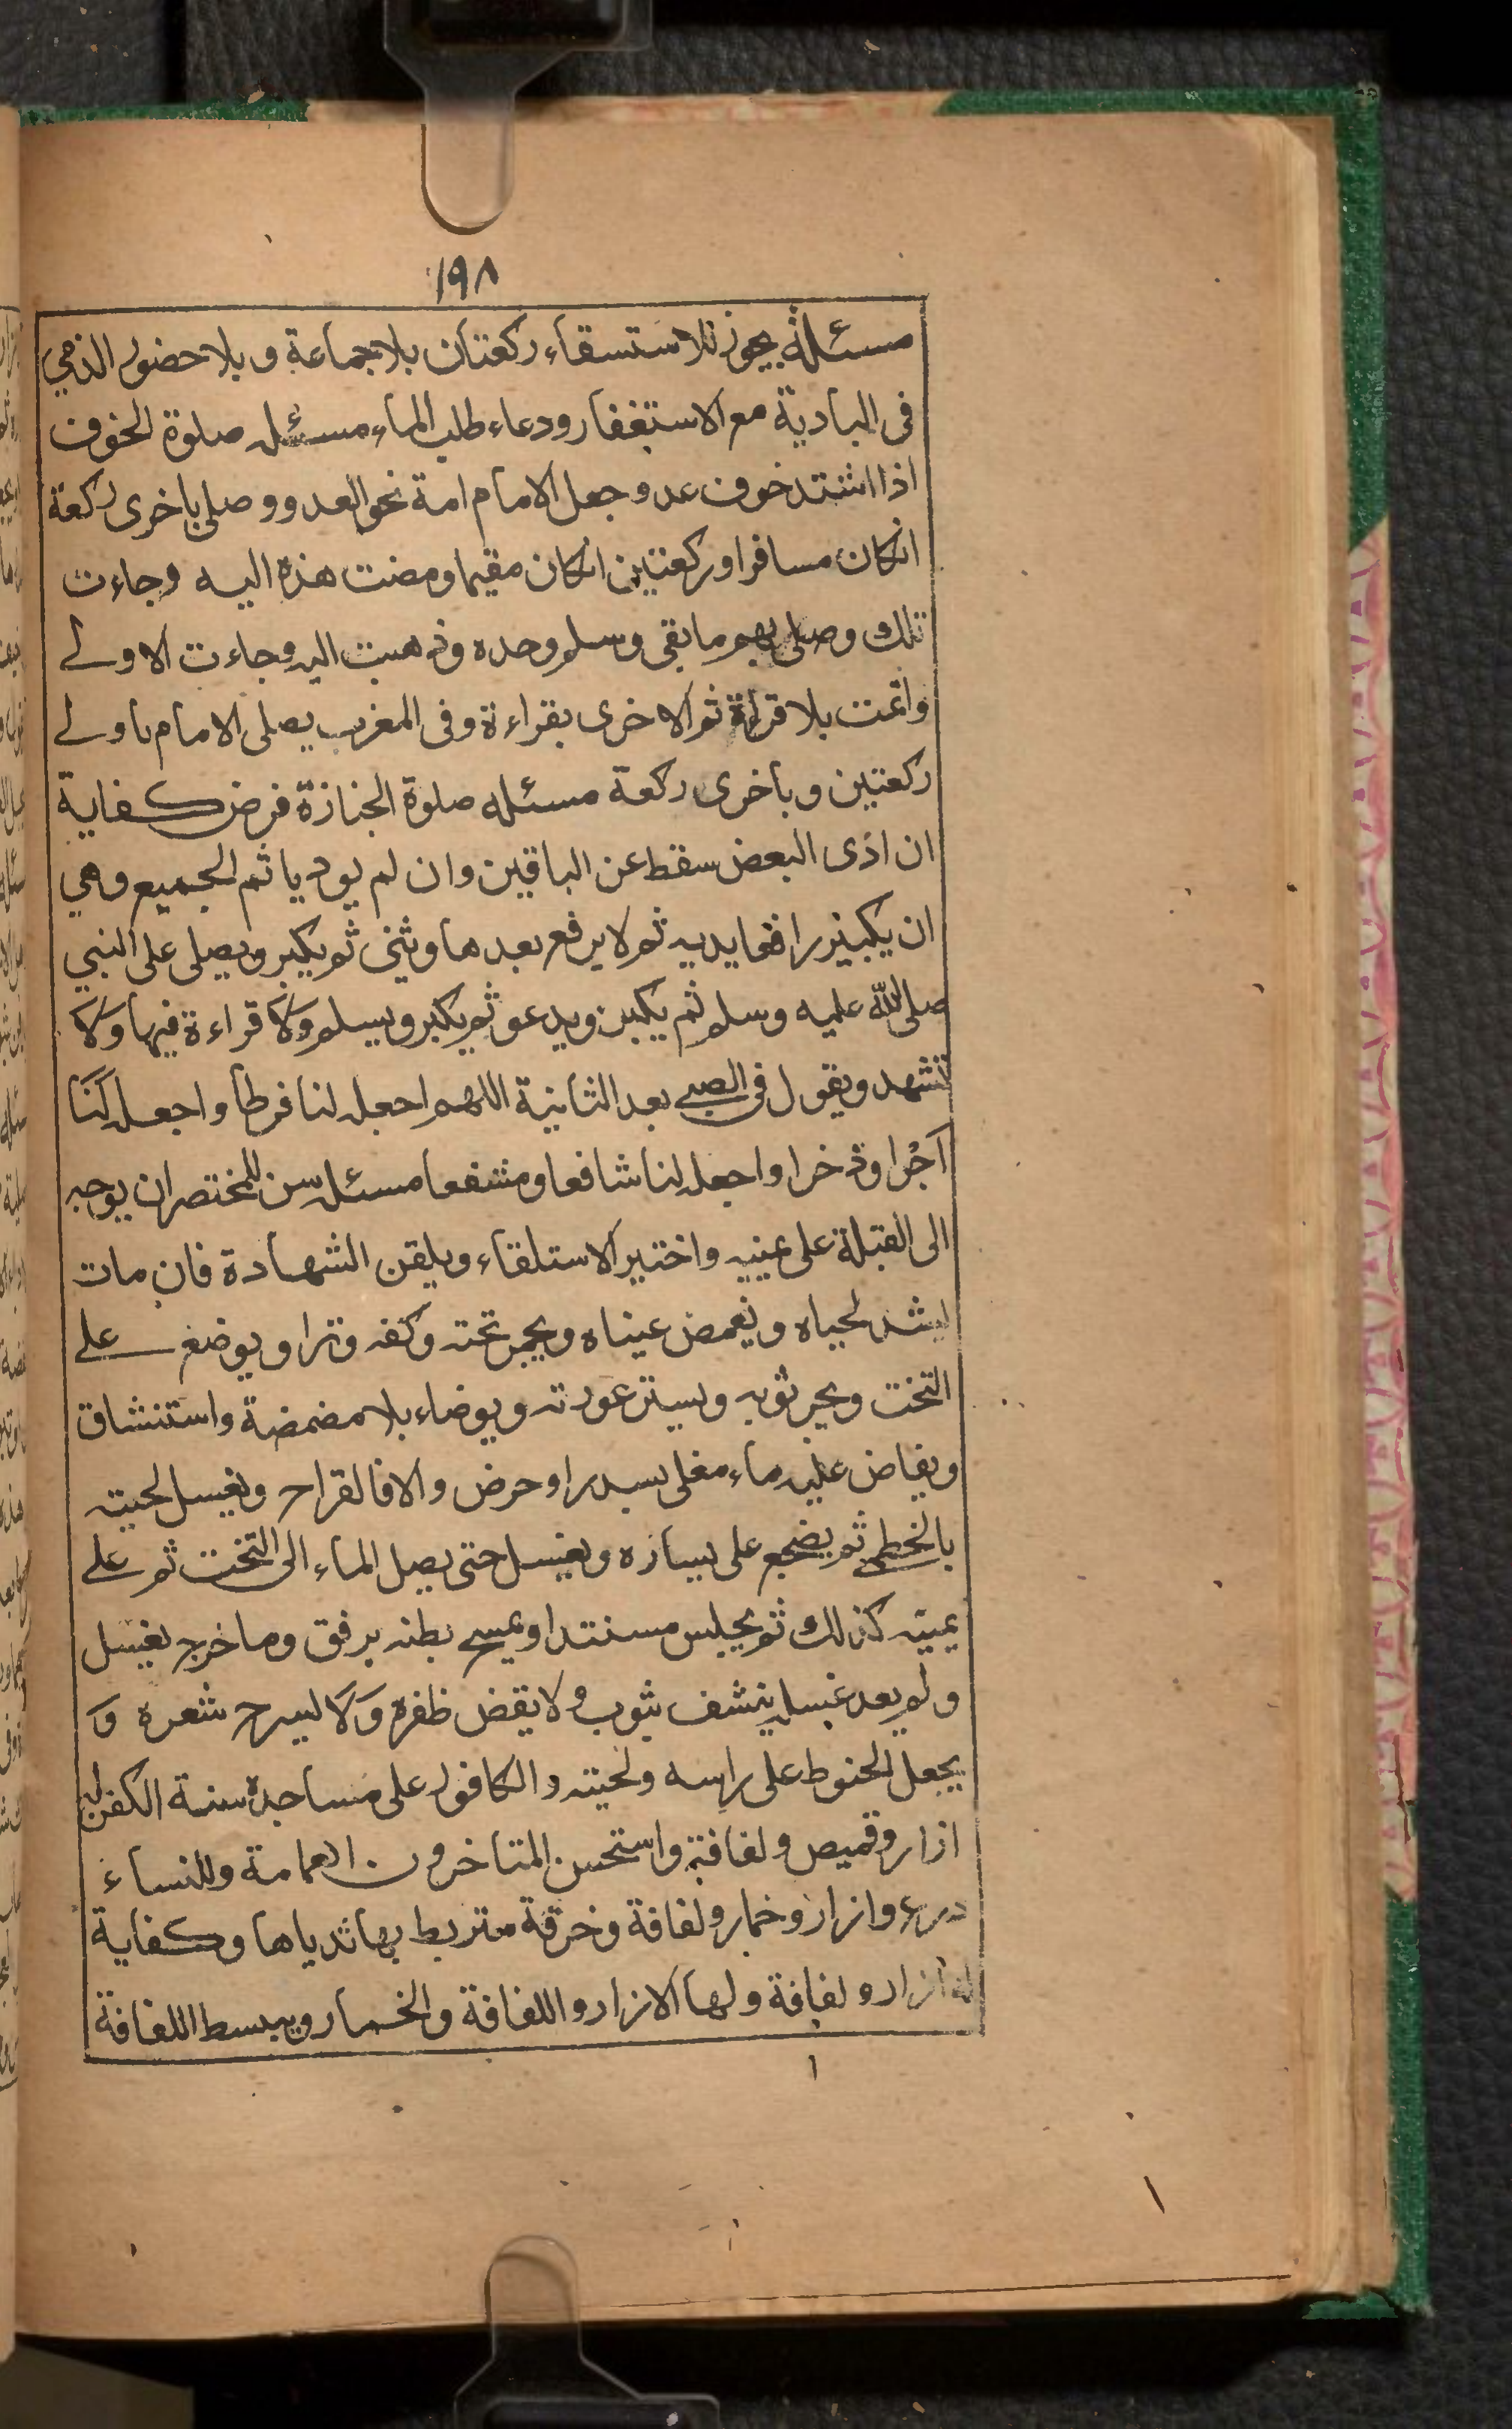 ١٩٨
مسئلة يجوز للاستسقاء ركعتان بلا جماعة و بلا حضور الذمي
فى البادية مع الاستغفار ودعاء طلب الماء مسئله صلوة الخوف
اذا اشتد خوف عدو جعل الامام امة نحو العدو وصلى باخرى ركعة
انكان مسافرا وركعتين انكان مقيما ومضت هذه اليه وجاءت
تلك وصلى بهم ما بقى وسلم وحده وذهبت اليه وجاءت الاولے
واتمت بلا قراءة ثم الاخرى بقراءة وفى المغرب يصلى الامام باولے
ركعتين وباخرى ركعة مسئله صلوة الجنازة فرض كفاية
ان ادى البعض سقط عن الباقين وان لم يود ياثم الجميع وهي
ان يكبر رافعا يديه ثم لا يرفع بعدها ويثنى ثم يكبر ويصلى على النبي
صلى الله عليه وسلم ثم يكبر ويدعو ثم يكبر ويسلم ولا قراءة فيها ولا
تشهد ويقول فى الصبے بعد الثانية اللهم اجعله لنا فرطا واجعله لنا
اجرا وذخرا واجعله لنا شافعا ومشفعا مسئله سن للمختصر ان يوجه
الى القبلة على يمينه واختير الاستلقاء ويلقن الشهادة فان مات
يشد لحياه ويغمض عيناه ويجمر تخته وكفنه وترا ويوضع علے
التخت ويجر ثوبه ويستر عورته ويوضاء بلا مضمضة واستنشاق
ويفاض عليه ماء مغلى بسدر او حرض والا فالقراح ويغسل لحيته
بالخطمے ثم يضجع على يساره ويغسل حتى يصل الماء الى التخت ثم علے
يمينه كذلك ثم يجلس مستندا ويمسح بطنه برفق وما خرج يغسل
ولم يعد غسله ينشف بثوب ولا يقض ظفره ولا يسرح شعره و
يجعل الحنوط على راسه ولحيته والكافور على مساجده سنة الكفن له
ازار وقميص ولفافة واستحسن المتاخرون العمامة وللنساء
درع وازار وخمار ولفافة وخرقة تربط بها ثدياها وكفاية
له ازار ولفافة ولها الازار واللفافة والخمار ويبسط اللفافة